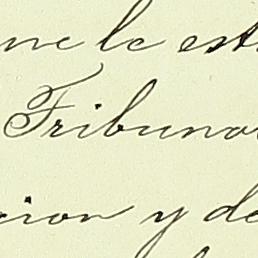 ne le est
Tribuna
cion y de